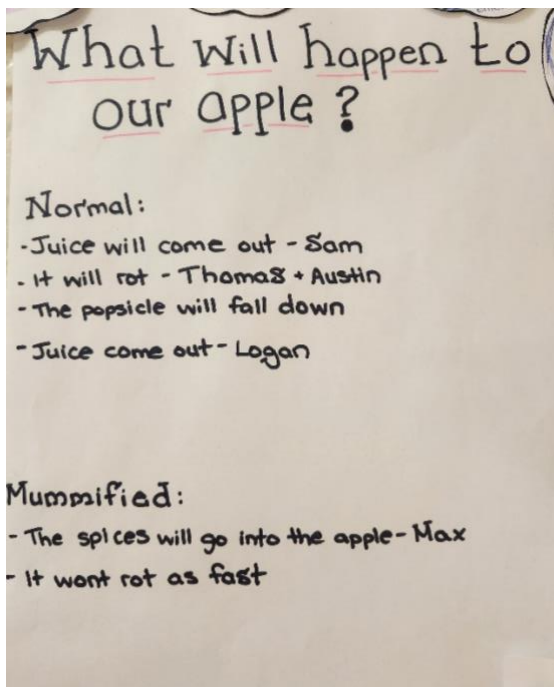 What will happen to
our apple?
Normal:
- Juice will come out - Sam
- It will rot - Thomas + Austin
- The popsicle will fall down
- Juice come out - Logan
Mummified:
- The spices will go into the apple - Max
- It wont rot as fast